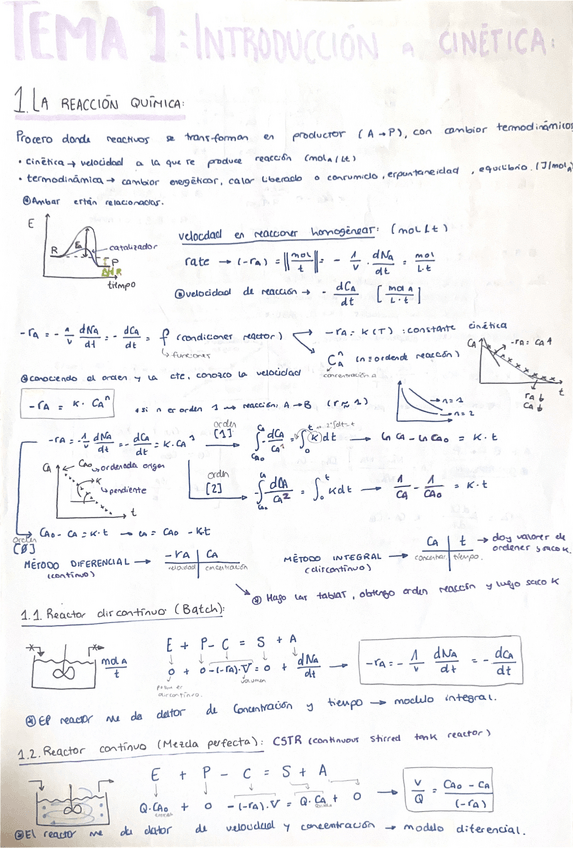 TEMA 1: INTRODUCCIÓN a CINÉTICA:
1. LA REACCIÓN QUÍMICA:
Proceso donde reactivos se transforman en productos (A→P), con cambios termodinámicos
• cinética → velocidad a la que se produce reacción (mol_A/Lt)
• termodinámica → cambios energéticos, calor liberado o consumido, espontaneidad, equilibrio. (J/mol_A)
Ambas están relacionadas.
E
R
Ea
catalizador
P
ΔHR
tiempo
velocidad en reacciones homogéneas: (mol/Lt)
rate → (-rA) = ||mol/t|| = - 1/V · dNA/dt = mol/L·t
velocidad de reacción → - dCA/dt [mol A/L·t]
-rA = - 1/V dNA/dt = - dCA/dt = f (condiciones reactor)
funciones
-rA = K(T) : constante cinética
CA^n (n = orden de reacción)
concentración a
CA
-rA = CA↑
rA↓
CA↓
t
conociendo el orden y la cte, conozco la velocidad
-rA = K · CA^n
* si n es orden 1 → reacción: A→B (r≈1)
n=1
n=2
-rA = - 1/V dNA/dt = - dCA/dt = K·CA^1
orden [1]
∫ CA0 CA - dCA/CA^1 = ∫ 0 t (K)dt → Ln CA - Ln CA0 = K·t
CA
CA0 → ordenada origen
K
pendiente
t
orden [2]
- ∫ CA0 CA dCA/CA^2 = ∫ 0 t K dt → 1/CA - 1/CA0 = K·t
orden [Ø]
CA0 - CA = K·t → CA = CA0 - Kt
MÉTODO DIFERENCIAL → -rA | CA
(continuo) velocidad concentración
MÉTODO INTEGRAL → CA | t → doy valores de ordenes y saco K.
(discontinuo) concentrac. tiempo.
Hago las tablas, obtengo orden reacción y luego saco K
1.1. Reactor discontinuo (Batch):
mol A/t
E + P - C = S + A
0 + 0 - (-rA)·V = 0 + dNA/dt → -rA = - 1/V dNA/dt = - dCA/dt
discontinuo. volumen
El reactor me da datos de concentración y tiempo → modulo integral.
1.2. Reactor continuo (Mezcla perfecta): CSTR (continuous stirred tank reactor)
E + P - C = S + A
Q·CA0 + 0 - (-rA)·V = Q·CA + 0 → V/Q = CA0 - CA/(-rA)
El reactor me da datos de velocidad y concentración → modelo diferencial.